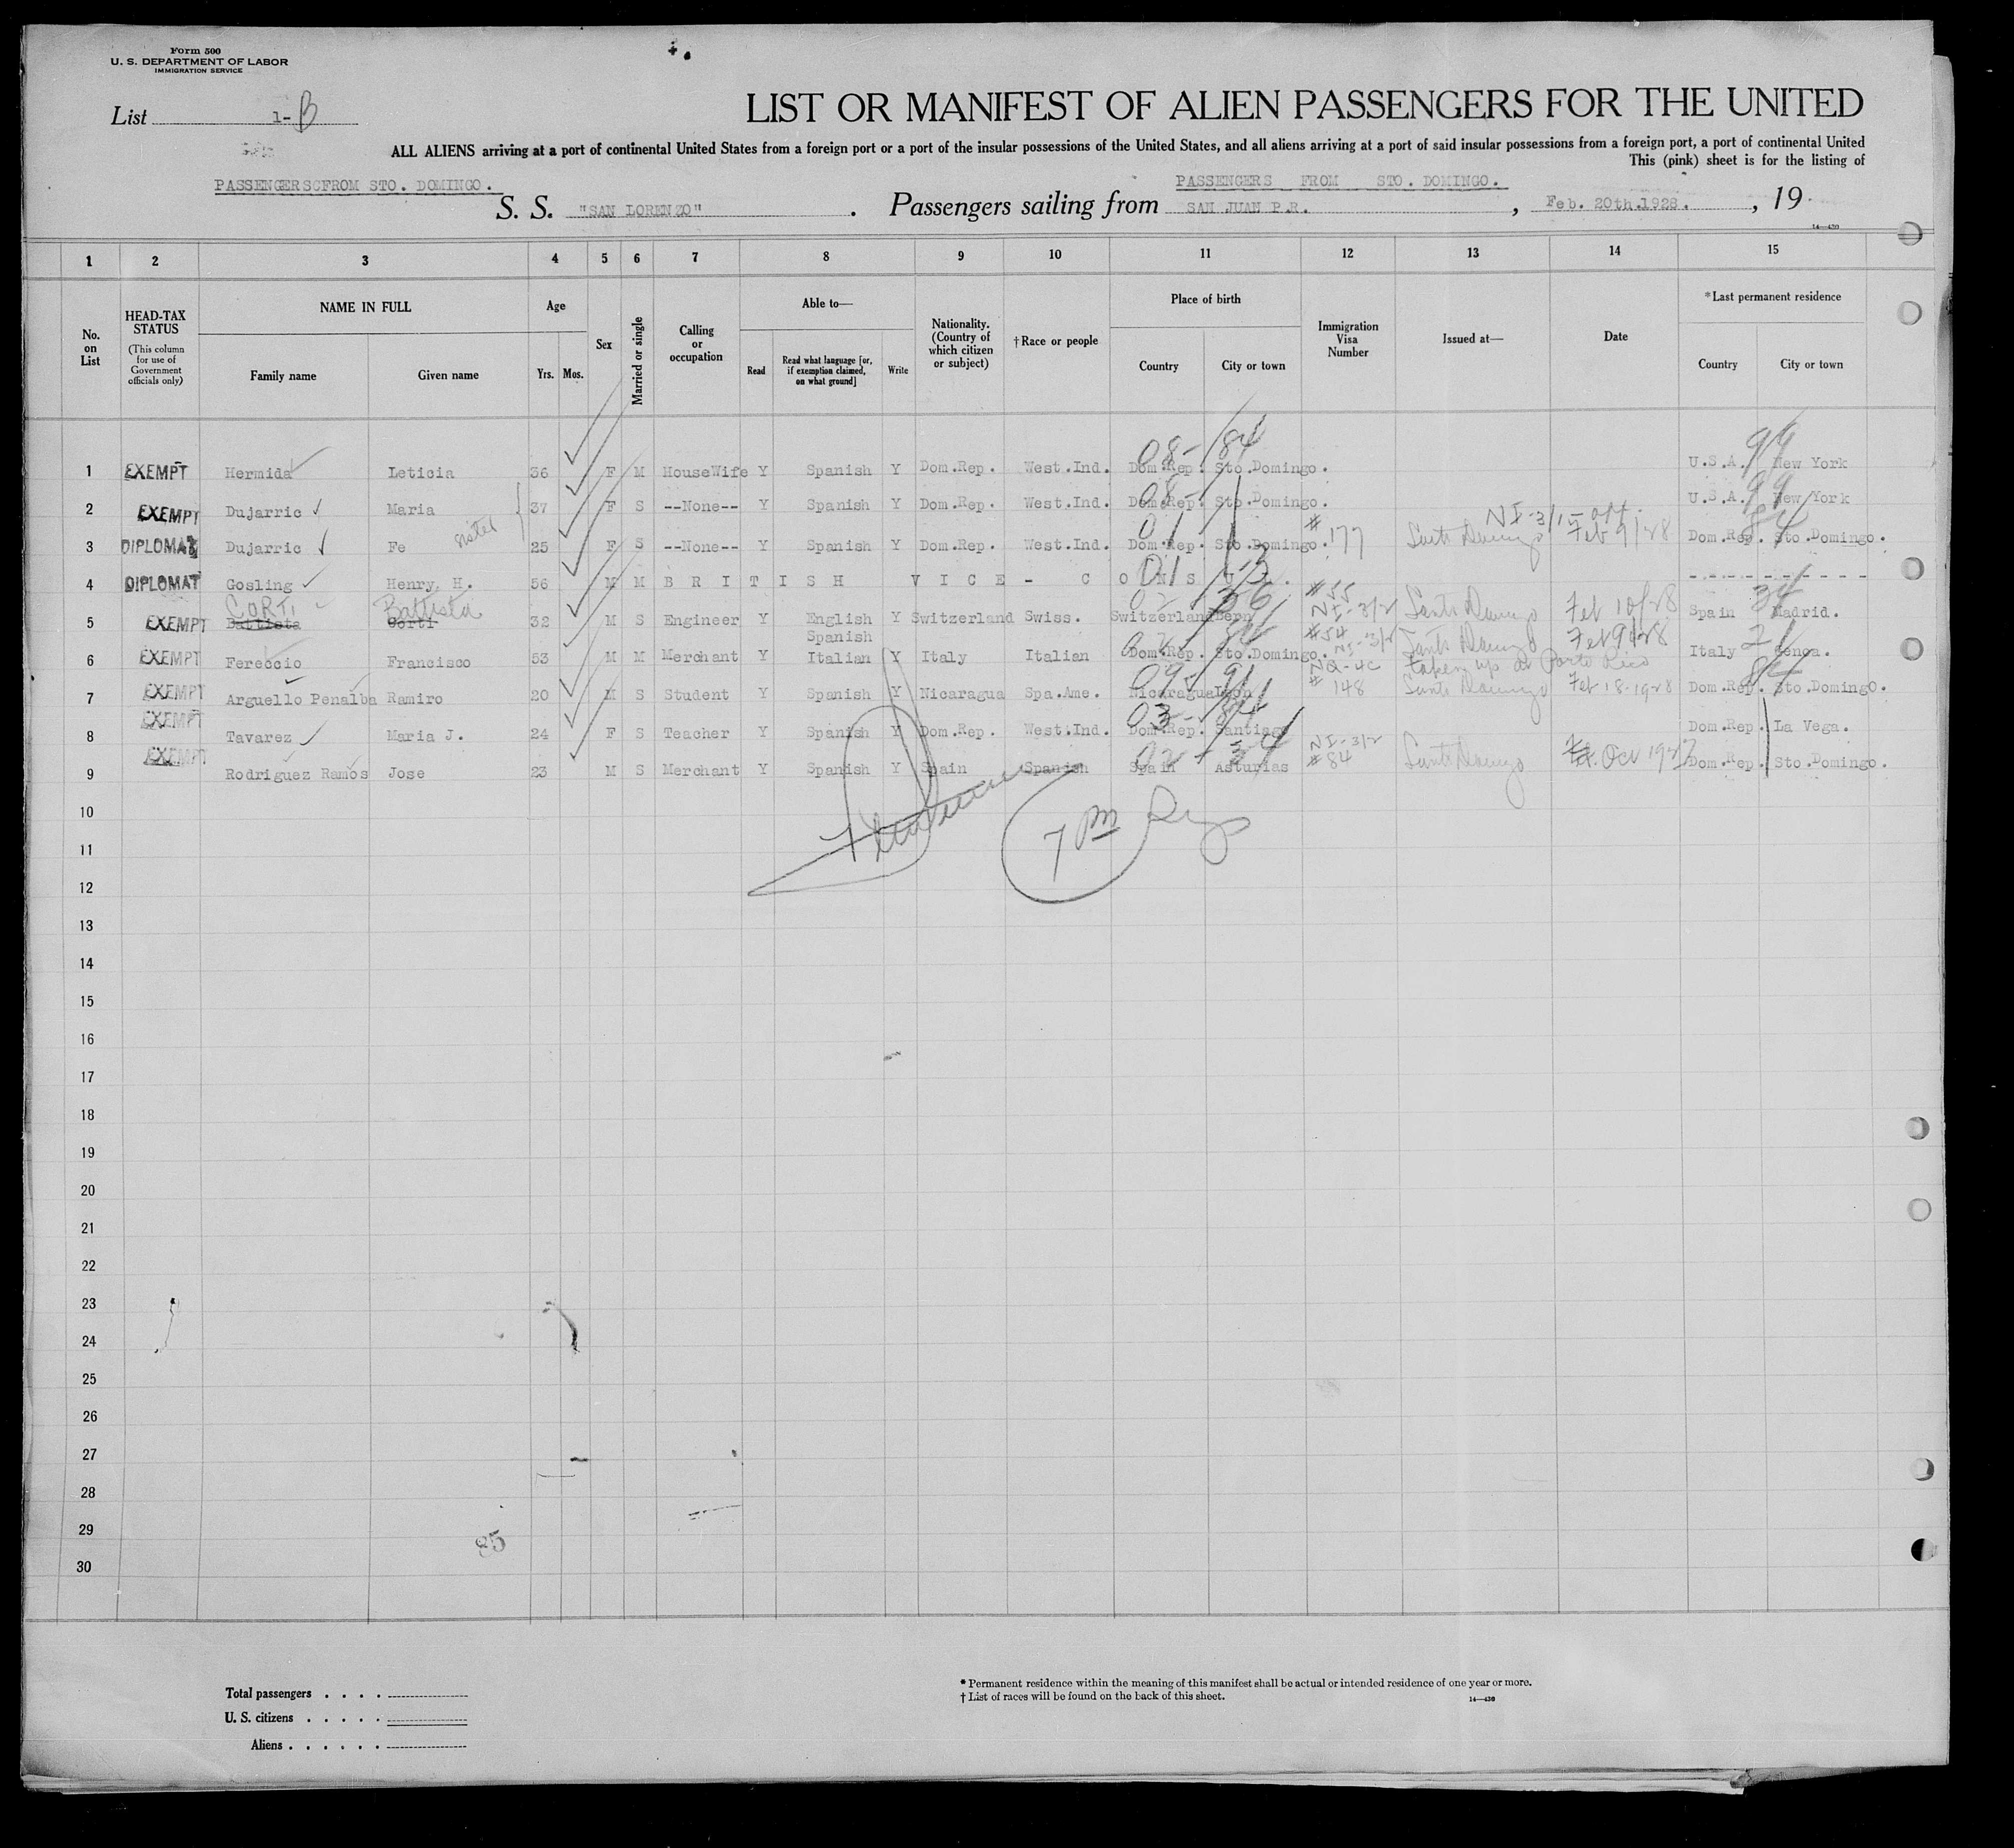 Form 500
U. S. DEPARTMENT OF LABOR
IMMIGRATION SERVICE
List 1-B
LIST OR MANIFEST OF ALIEN PASSENGERS FOR THE UNITED
ALL ALIENS arriving at a port of continental United States from a foreign port or a port of the insular possessions of the United States, and all aliens arriving at a port of said insular possessions from a foreign port, a port of continental United
This (pink) sheet is for the listing of
PASSENGERSCFROM STO. DOMINGO. PASSENGERS FROM STO. DOMINGO.
S. S. "SAN LORENZO" . Passengers sailing from SAN JUAN P.R. , Feb. 20th.1928. , 19
14—430
1 2 3 4 5 6 7 8 9 10 11 12 13 14 15
No. on List
HEAD-TAX STATUS
(This column for use of Government officials only)
NAME IN FULL
Family name Given name
Age
Yrs. Mos.
Sex
Married or single
Calling or occupation
Able to—
Read
Read what language [or, if exemption claimed, on what ground]
Write
Nationality. (Country of which citizen or subject)
†Race or people
Place of birth
Country City or town
Immigration Visa Number
Issued at—
Date
*Last permanent residence
Country City or town
08- 84 99
1 EXEMPT Hermida Leticia 36 F M HouseWife Y Spanish Y Dom.Rep. West.Ind. Dom.Rep. Sto.Domingo. U.S.A. New York
08- 99
2 EXEMPT Dujarric Maria 37 F S --None-- Y Spanish Y Dom.Rep. West.Ind. Dom.Rep. Sto.Domingo. U.S.A. New York
sister 01 84
3 DIPLOMAT Dujarric Fe 25 F S --None-- Y Spanish Y Dom.Rep. West.Ind. Dom.Rep. Sto.Domingo. #177 Santo Domingo Feb 9/28 Dom.Rep. Sto.Domingo.
4 DIPLOMAT Gosling Henry. H. 56 M M BRITISH VICE - CONSUL. ----------
CORTI Battista 02 36 #55 34
5 EXEMPT Battista Corti 32 M S Engineer Y English Y Switzerland Swiss. Switzerland Bern NI-3/2 Santo Domingo Feb 10/28 Spain Madrid.
Spanish #54 NI-3/2 Santo Domingo Feb 9/28
6 EXEMPT Fereccio Francisco 53 M M Merchant Y Italian Y Italy Italian Dom.Rep. Sto.Domingo. Italy Genoa.
09- 91 NQ-4c taken up at Porto Rico 84
7 EXEMPT Arguello Penalba Ramiro 20 M S Student Y Spanish Y Nicaragua Spa.Ame. Nicaragua Leon # 148 Santo Domingo Feb 18-1928 Dom.Rep. Sto.Domingo.
03- 84
8 EXEMPT Tavarez Maria J. 24 F S Teacher Y Spanish Y Dom.Rep. West.Ind. Dom.Rep. Santiago Dom.Rep. La Vega.
02 34 NI-3/2
9 EXEMPT Rodriguez Ramos Jose 23 M S Merchant Y Spanish Y Spain Spanish Spain Asturias #84 Santo Domingo Oct 1927 Dom.Rep. Sto.Domingo.
10
7 PM
11
12
13
14
15
16
17
18
19
20
21
22
23
24
25
26
27
28
29
85
30
Total passengers . . . .
U. S. citizens . . . . .
Aliens . . . . . .
* Permanent residence within the meaning of this manifest shall be actual or intended residence of one year or more.
† List of races will be found on the back of this sheet. 14—430